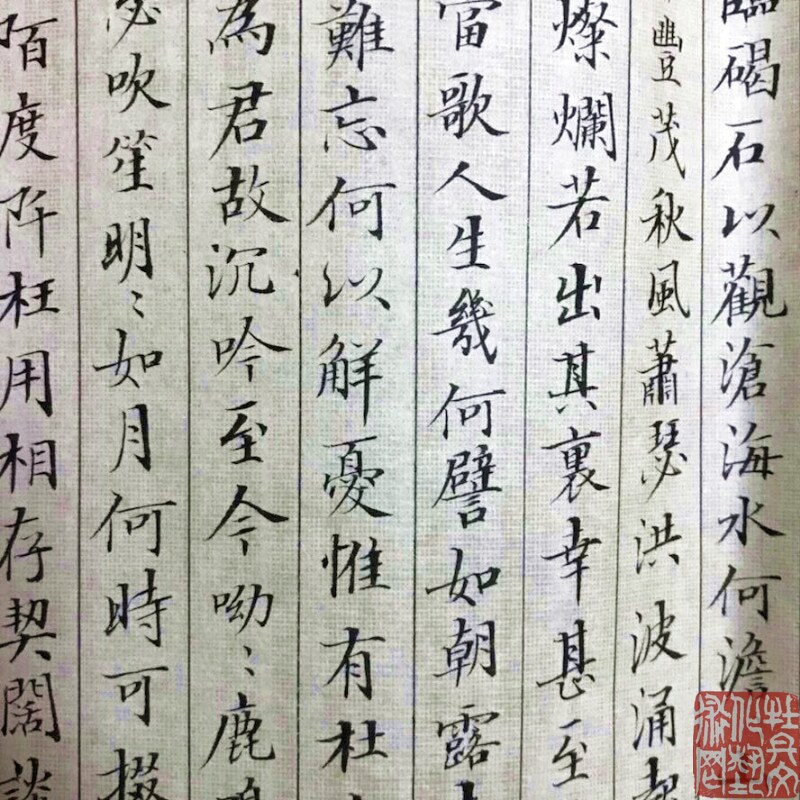 臨碣石以觀滄海水何澹
豐茂秋風蕭瑟洪波涌起
燦爛若出其裏幸甚至
當歌人生幾何譬如朝露
難忘何以解憂惟有杜
為君故沉吟至今呦〻鹿鳴
瑟吹笙明〻如月何時可掇
陌度阡枉用相存契闊談